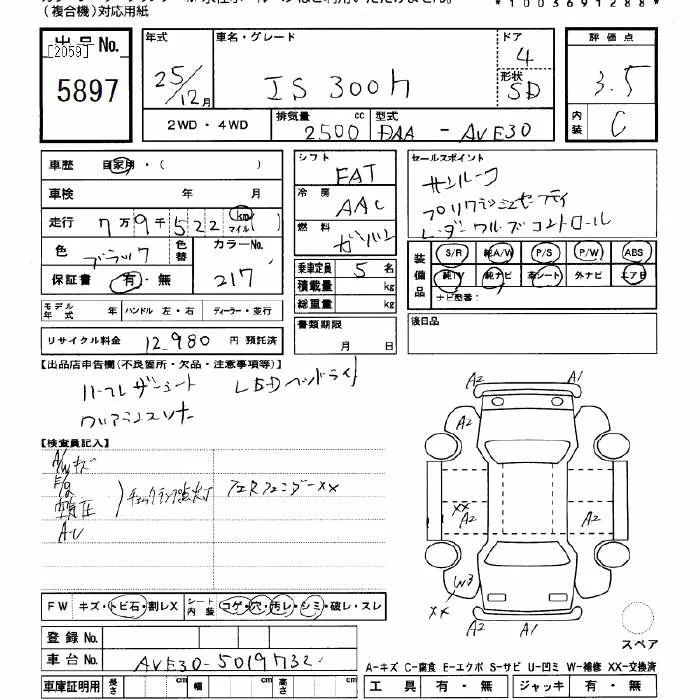 (複合機)対応用紙
*1003691288*
出品No.
[2059]
5897
年式
25/12月
車名・グレード
IS 300h
ドア
4
形状
SD
評価点
3.5
内装
C
2WD・4WD
排気量
2500 cc
型式
DAA - AVE30
車歴 自家用・( )
車検 年 月
走行 7万9千522 km マイル( )
色 ブラック
色替
カラーNo.
217
保証書 有・無
モデル年式 年 ハンドル 左・右 ディーラー・並行
リサイクル料金 12,980 円 預託済
シフト FAT
冷房 AAC
燃料 ガソリン
乗車定員 5 名
積載量 kg
総重量 kg
書類期限
月 日
セールスポイント
サンルーフ
プリクラッシュセーフティ
レーダークルーズコントロール
装備品
S/R 純A/W P/S P/W ABS
純TV 純ナビ 革シート 外ナビ エアB
ナビ型番:
後日品
【出品店申告欄(不良箇所・欠品・注意事項等)】
ハーフレザーシート LEDヘッドライト
クリアランスソナー
【検査員記入】
A/Wキズ
E/g
空気圧
チェックランプ点灯
フェンダーXX
A2
A1
A2
XX
A2
A2
W3
XX
A2
A1
スペア
FW キズ・トビ石・割レX
シート内装 コゲ・穴・汚レ・シミ・破レ・スレ
登録No.
車台No. AVE30-5019732
車庫証明用 長さ cm 幅 cm 高さ cm
A-キズ C-腐食 E-エクボ S-サビ U-凹ミ W-補修 XX-交換済
工具 有・無 ジャッキ 有・無